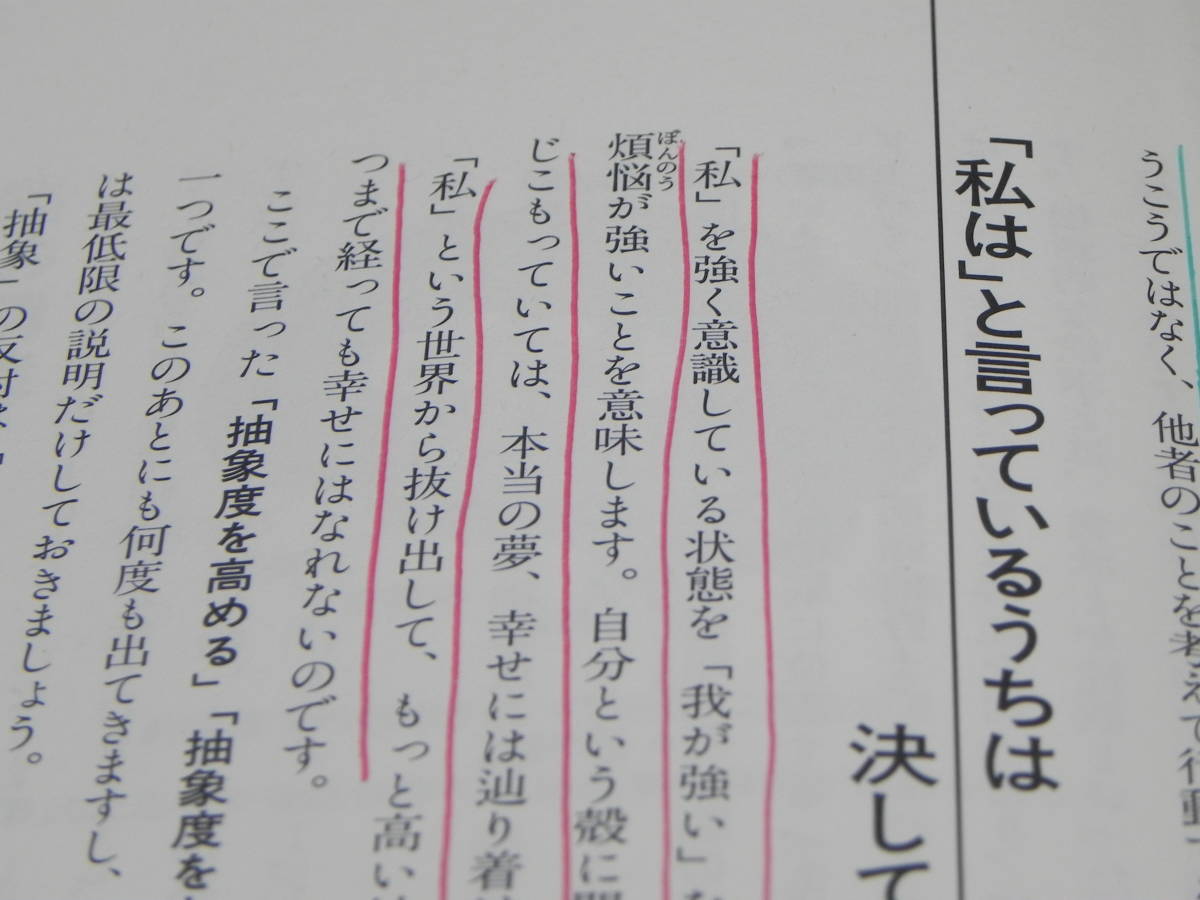 うこうではなく、他者のことを考えて行動
「私は」と言っているうちは
決して
「私」を強く意識している状態を「我が強い」
煩悩が強いことを意味します。自分という殻に
ぼんのう
じこもっていては、本当の夢、幸せには辿り着
「私」という世界から抜け出して、もっと高い
つまで経っても幸せにはなれないのです。
ここで言った「抽象度を高める」「抽象度を
一つです。このあとにも何度も出てきますし、
は最低限の説明だけしておきましょう。
「抽象」の反対は